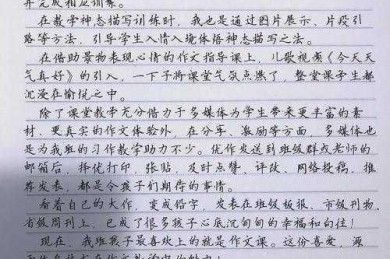 并完成相应训练。
在教学神态描写训练时，我也是通过图片展示、片段引
路等方法，引导学生入情入境体悟神态描写之法。
在借助景物表现心情的作文指导课上，儿歌视频《今天天
气真好》的引入，一下子将课堂气氛点燃了，整堂课学生都
沉浸在愉悦之中。
除了课堂教学充分借力于多媒体为学生带来更丰富的素
材、更真实的作文体验外，在分享、激励等方面，多媒体也
是为我班的习作教学助力不少。优作发送到班级群或老师的
邮箱后，择优打印，张贴，及时点赞、评改、网络投稿，推
荐发表，都是令孩子们期待的事情。
看着自己的大作，变成铅字，发表在班级板报、市级刊物、
省级周刊上，已成了很多孩子心底沉甸甸的幸福和向往！
现在，我班孩子最喜欢上的就是作文课。这份喜爱，源